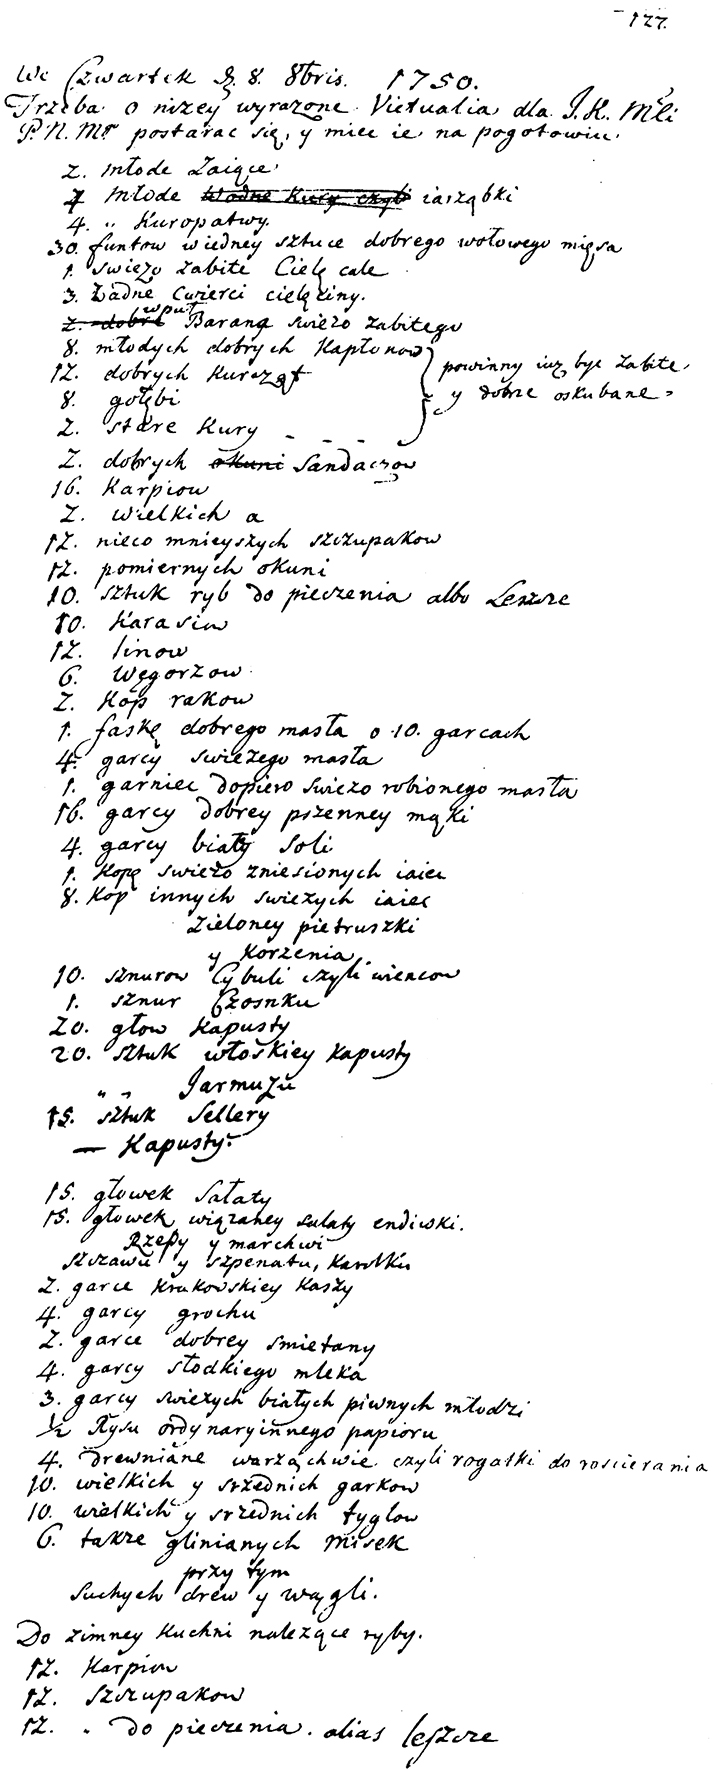 127.
We Czwartek d. 8. 8bris. 1750.
Trzeba o niżey wyrażone Victualia dla J. K. Mći
P. N. Mł postarac się, y miec ie na pogotowiu.
2. młode Zaiące
4 młode Wodne Kury czyli iarząbki
4. " Kuropatwy.
30. funtow wiedney sztuce dobrego wołowego mięsa
1. swieżo zabite Cielę cale
3. Zadne Cwierci cielęziny.
2. dobre wpuł Barana swieżo zabitego
8. młodych dobrych Kapłonow
12. dobrych Kurcząt
powinny iuz byc zabite
8. gołębi
y dobrze oskubane
2. stare Kury
2. dobrych okuni Sandaczow
16. Karpiow
2. wielkich a
12. nieco mnieyszych szczupakow
12. pomiernych okuni
10. sztuk ryb do pieczenia albo Leszcze
10. Karasiow
12. linow
6. Węgorzow
2. Kop rakow
1. faskę dobrego masła o 10. garcach
4. garcy swieżego masła
1. garniec dopiero swieżo robionego masła
16. garcy dobrey pszenney mąki
4. garcy białey Soli
1. Kopę swieżo zniesionych iaiec
8. Kop innych swieżych iaiec
Zieloney pietruszki
y Korzenia
10. sznurow Cybuli czyli wiencow
1. sznur Czosnku
20. głow Kapusty
20. sztuk włoskiey Kapusty
" " Jarmużu
15. sztuk Sellery
— Kapusty.
15. głowek Sałaty
15. głowek wiązaney salaty endiwski.
Rzepy y marchwi
Szczawiu y szpenatu, Karotki
2. garce Krakowskiey Kaszy
4. garcy grochu
2. garce dobrey smietany
4. garcy słodkiego mleka
3. garcy swieżych białych piwnych młodzi
1/2 Rysu ordynaryinnego papioru
4. drewniane warząchwie czyli rogalki do roscierania
10. wielkich y srzednich garkow
10. wielkich y srzednich tyglow
6. takze glinianych Misek
przy tym
Suchych drew y wągli.
Do zimney Kuchni nalezące ryby.
12. Karpiow
12. Szczupakow
12. " do pieczenia. alias leszcze